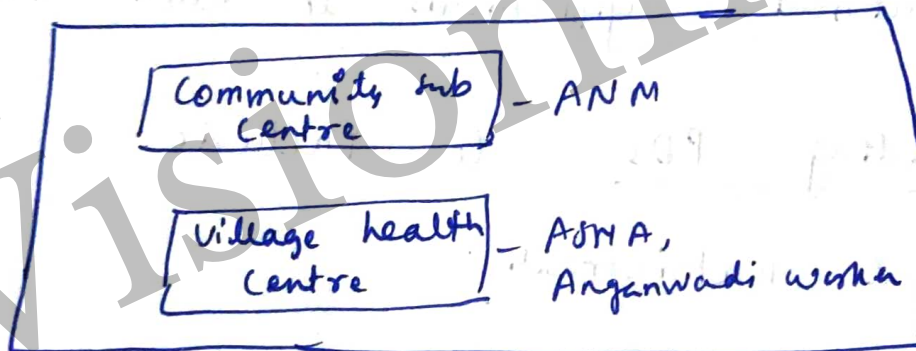 Community sub
Centre
- ANM
Village health
Centre
- ASHA,
Anganwadi worker